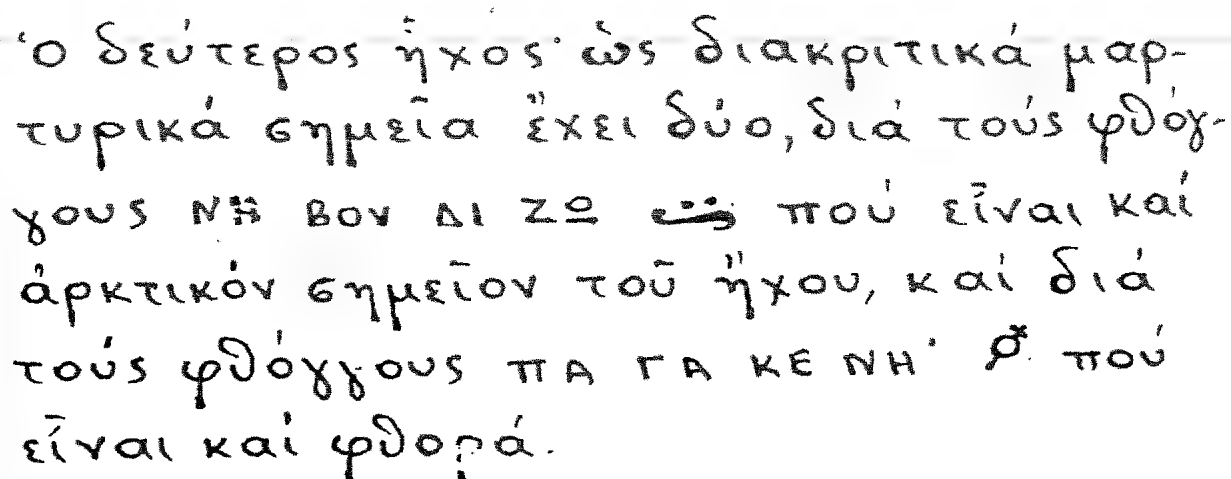 Ὁ δεύτερος ἦχος· ὡς διακριτικά μαρ-
τυρικά σημεῖα ἔχει δύο, διά τούς φθόγ-
γους ΝΗ ΒΟΥ ΔΙ ΖΩ πού εἶναι καί
ἀρκτικόν σημεῖον τοῦ ἤχου, καί διά
τούς φθόγγους ΠΑ ΓΑ ΚΕ ΝΗ' πού
εἶναι καί φθορά.